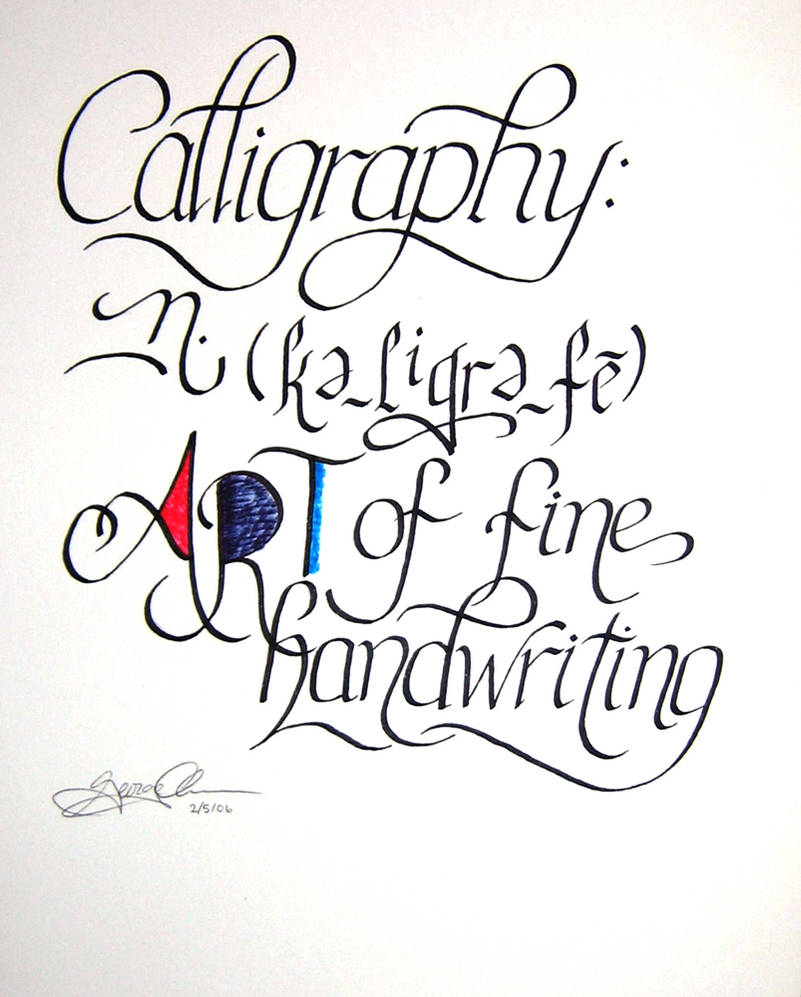 Calligraphy:
n. (kə-ligrə-fē)
ART of fine
handwriting
2/5/06